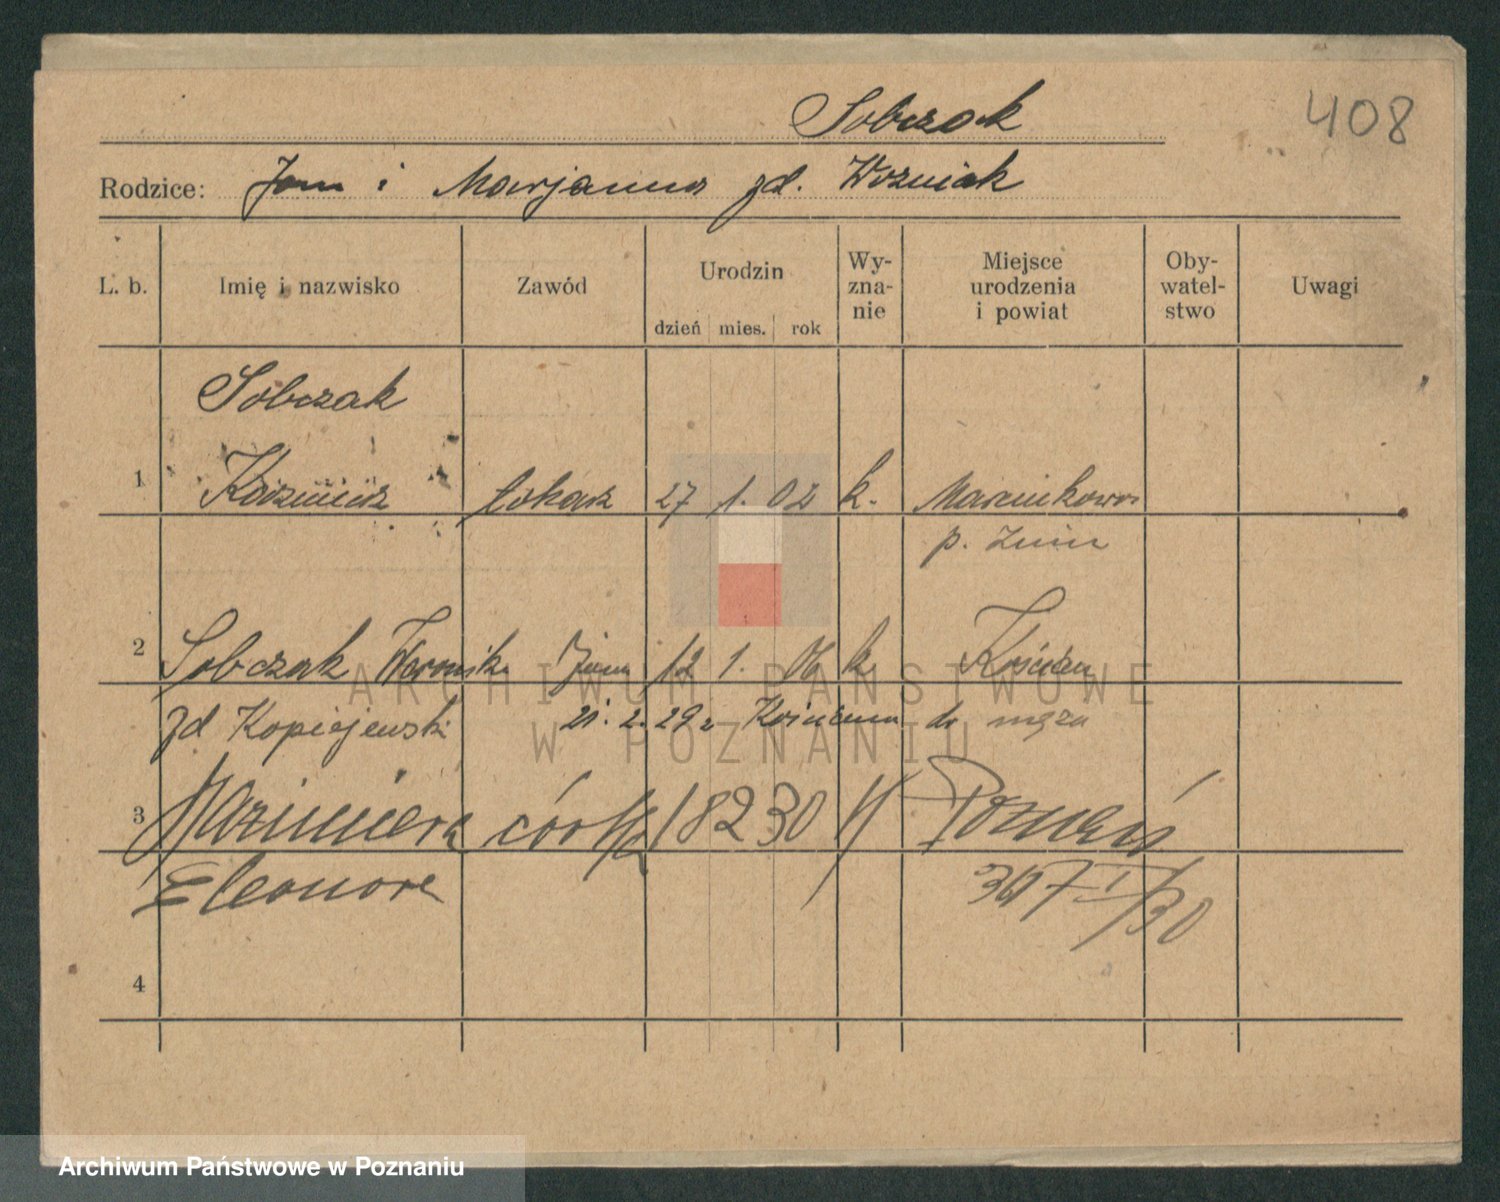 408
Sobczak
Rodzice: Jan i Marjanna zd. Woźniak
L. b. Imię i nazwisko Zawód Urodzin dzień mies. rok Wy-zna-nie Miejsce urodzenia i powiat Oby-watel-stwo Uwagi
Sobczak
1 Kazimierz tokarz 27 1. 02 k. Marcinkowo
p. Żnin
2 Sobczak żona 12 1. 06 k. Kościan
zd Kopiejewski 21. 2. 29 do męża
3 Kazimiera córka 18 2 30 Poznań
Eleonora
4
ARCHIWUM PAŃSTWOWE
W POZNANIU
Archiwum Państwowe w Poznaniu